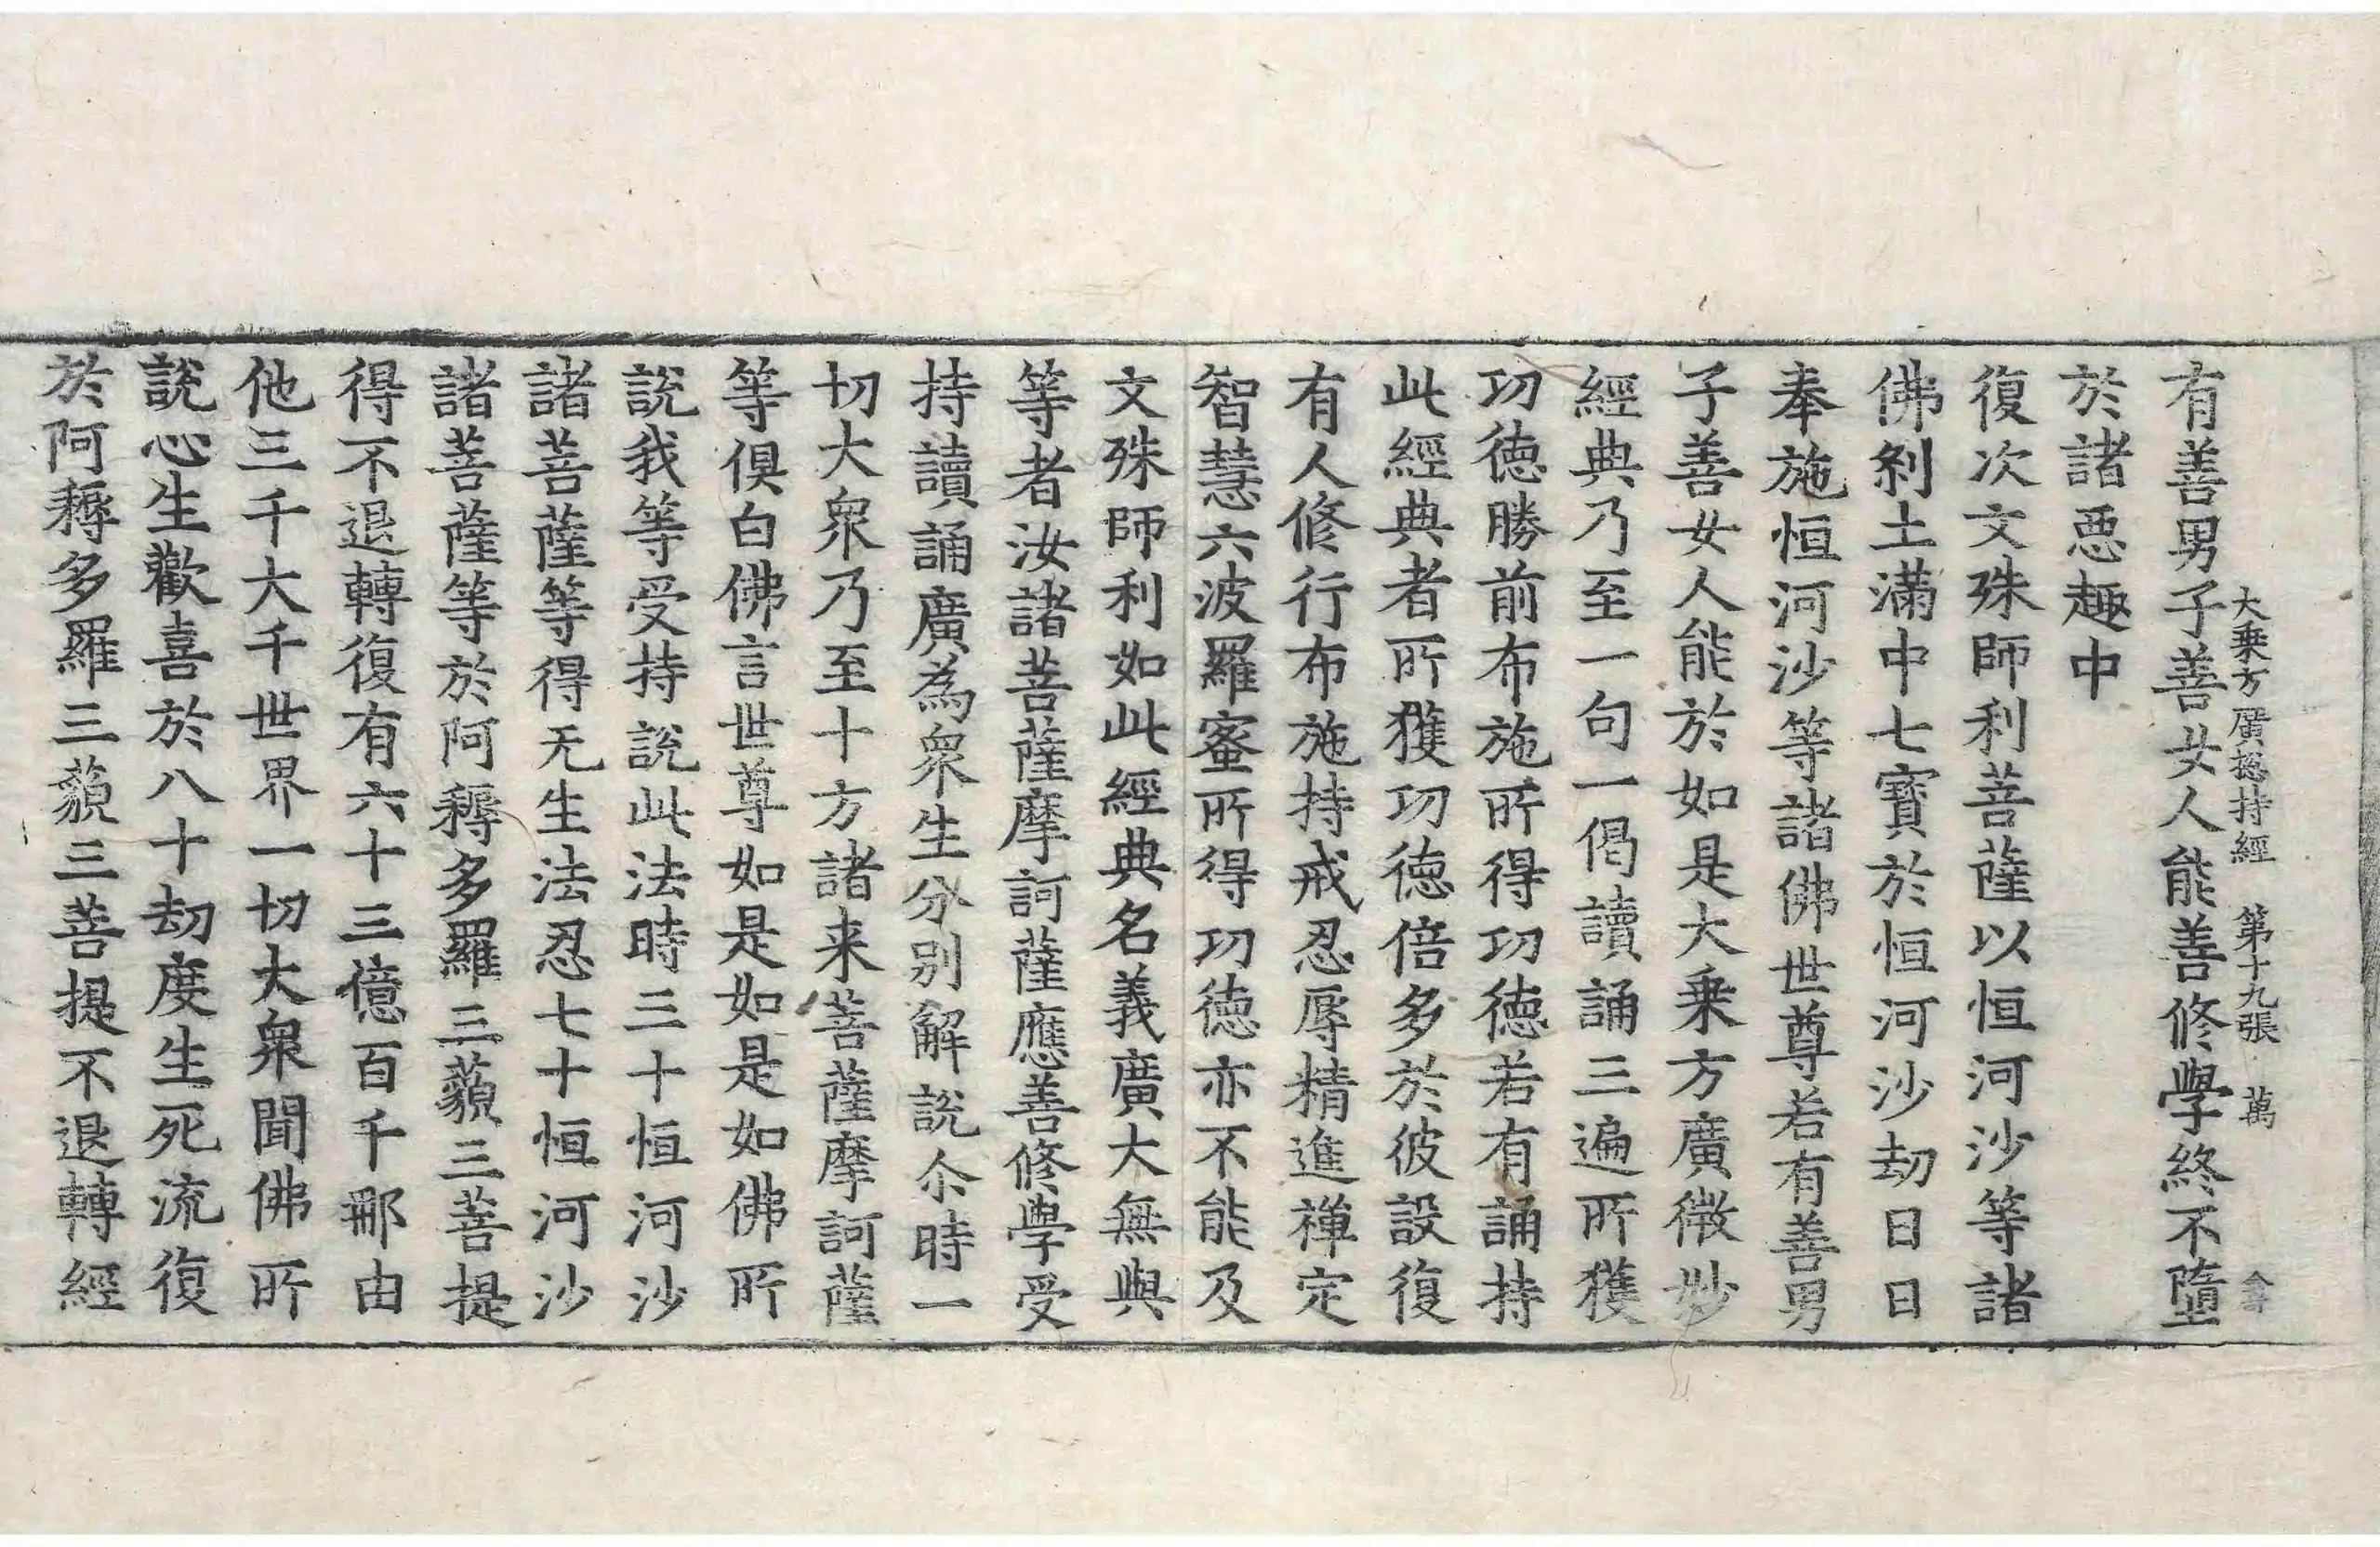 大乗方廣揔持經 第十九張 萬
有善男子善女人能善修學終不墮
於諸惡趣中
復次文殊師利菩薩以恒河沙等諸
佛剎土滿中七寶於恒河沙劫日日
奉施恒河沙等諸佛世尊若有善男
子善女人能於如是大乗方廣微妙
經典乃至一句一偈讀誦三遍所獲
功德勝前布施所得功德若有誦持
此經典者所獲功德倍多於彼設復
有人修行布施持戒忍辱精進禪定
智慧六波羅蜜所得功德亦不能及
文殊師利如此經典名義廣大無與
等者汝諸菩薩摩訶薩應善修學受
持讀誦廣為衆生分別解說尒時一
切大衆乃至十方諸来菩薩摩訶薩
等俱白佛言世尊如是如是如佛所
說我等受持說此法時三十恒河沙
諸菩薩等得无生法忍七十恒河沙
諸菩薩等於阿耨多羅三藐三菩提
得不退轉復有六十三億百千那由
他三千大千世界一切大衆聞佛所
說心生歡喜於八十劫度生死流復
於阿耨多羅三藐三菩提不退轉經